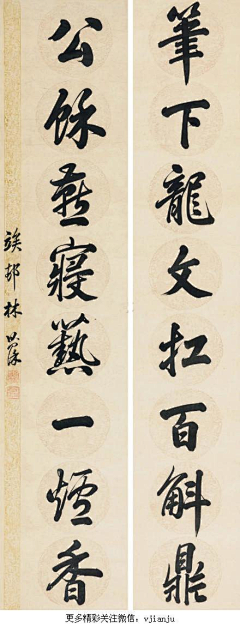 筆下龍文扛百斛鼎
公餘燕寢爇一爐香
竢邨林則徐
更多精彩关注微信：vjianju